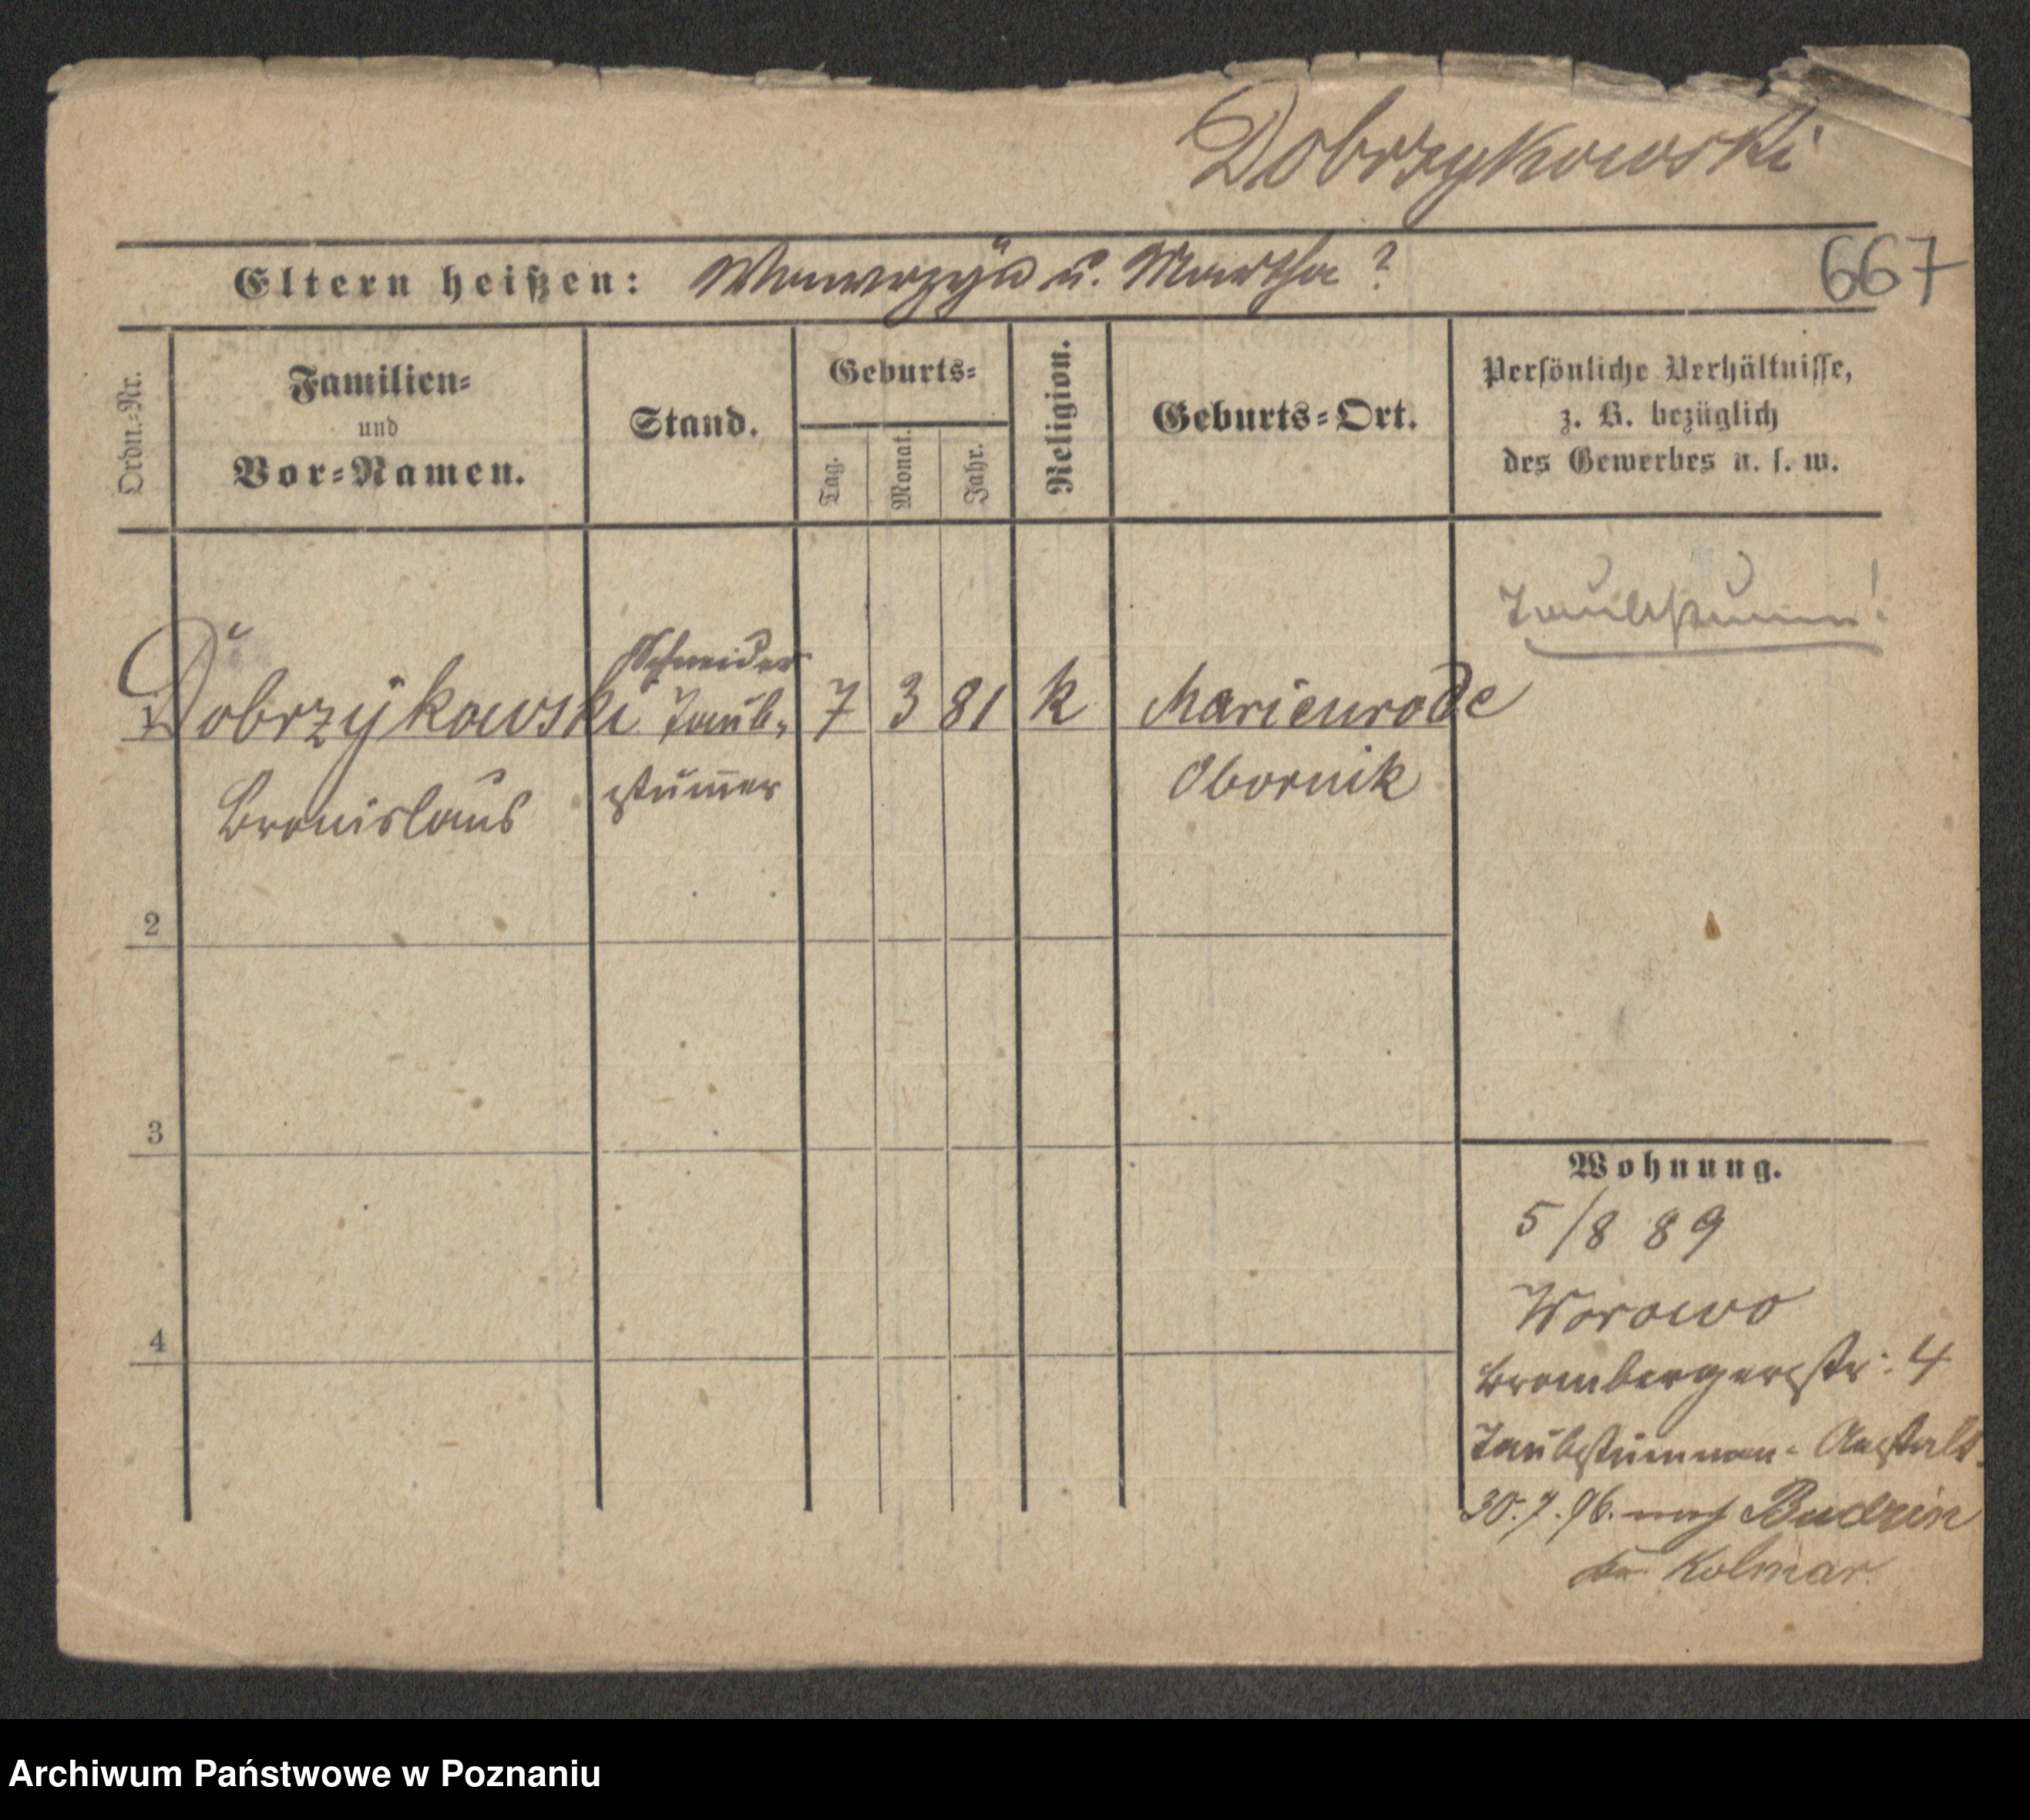 Dobrzykowski
Eltern heißen: Wawrzyn u. Martha ?
667
Ordn.=Nr.
Familien=
und
Vor=Namen.
Stand.
Geburts=
Tag.
Monat.
Jahr.
Religion.
Geburts=Ort.
Persönliche Verhältnisse,
z. B. bezüglich
des Gewerbes u. s. w.
Taubstumm!
1 Dobrzykowski Schneider Taub= 7 3 81 k Marienrode
Bronislaus stum̅er Obornik
2
3
4
Wohnung.
5/8 89
Worowo
Brombergerstr. 4
Taubstummen-Anstalt.
30.7.96. nach Budzin
Kr. Kolmar.
Archiwum Państwowe w Poznaniu